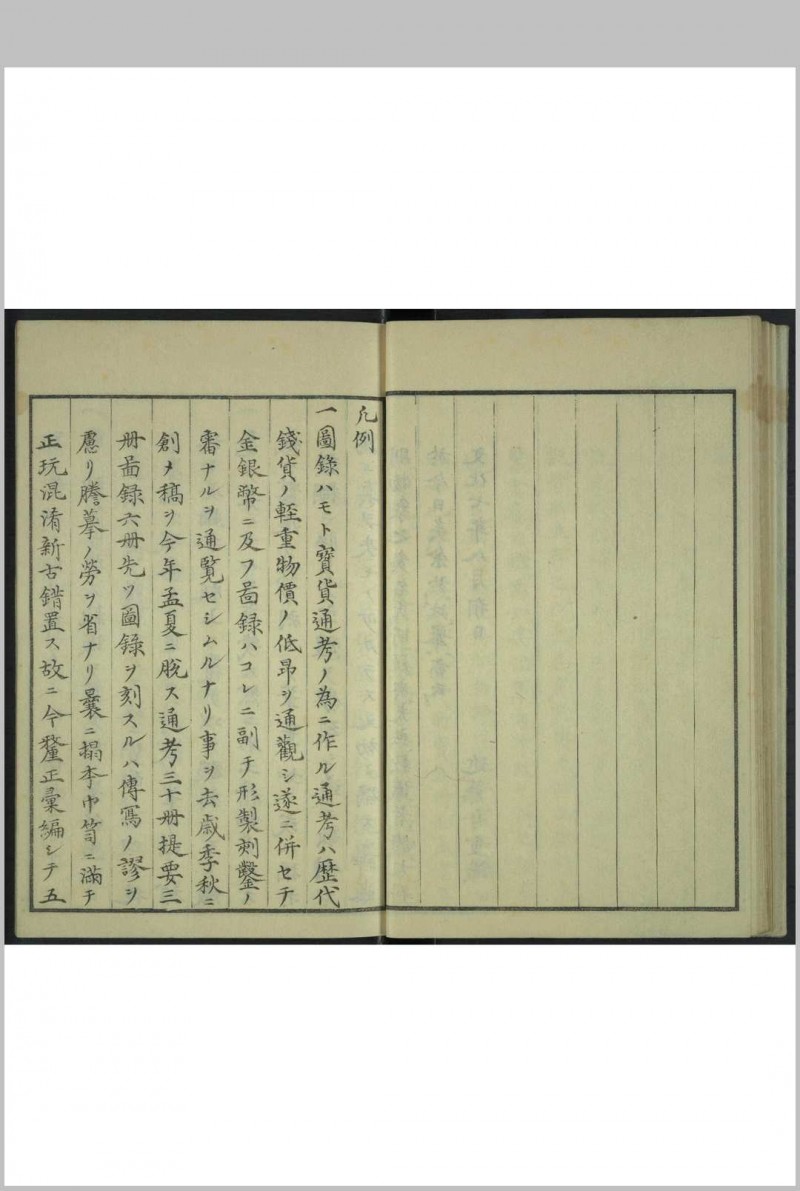 凡例
一圖錄ハモト寶貨通考ノ為ニ作ル通考ハ歴代
錢貨ノ輕重物價ノ低昂ヲ通觀シ遂ニ併セテ
金銀幣ニ及フ啚録ハコレニ副テ形製刻鑿ノ
審ナルヲ通覽セシムルナリ事ヲ去歳季秋ニ
創メ稿ヲ今年孟夏ニ脫ス通考三十册提要三
册啚録六册先ツ圖錄ヲ刻スルハ傳寫ノ謬ヲ
慮リ謄摹ノ勞ヲ省ナリ曩ニ搨本巾笥ニ滿チ
正玩混淆新古錯置ス故ニ今釐正彙編シテ五